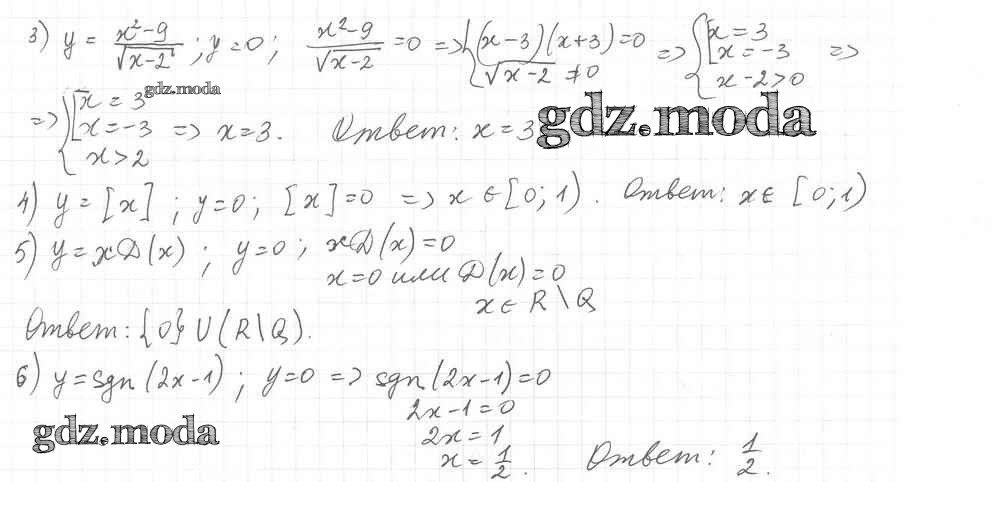 3) y = (x²-9)/√(x-2) ; y=0 ; (x²-9)/√(x-2) = 0 => { (x-3)(x+3)=0 ; √(x-2) ≠0 => { [ x=3 ; x=-3 ; x-2>0 =>
gdz.moda
=> { [ x=3 ; x=-3 ; x>2 => x=3. Ответ: x=3
gdz.moda
4) y=[x] ; y=0; [x]=0 => x∈[0;1). Ответ: x∈[0;1)
5) y=xD(x) ; y=0 ; xD(x)=0
x=0 или D(x)=0
x∈R\Q
Ответ: {0}U(R\Q).
6) y=sgn(2x-1) ; y=0 => sgn(2x-1)=0
2x-1=0
gdz.moda
2x=1
x=1/2. Ответ: 1/2.